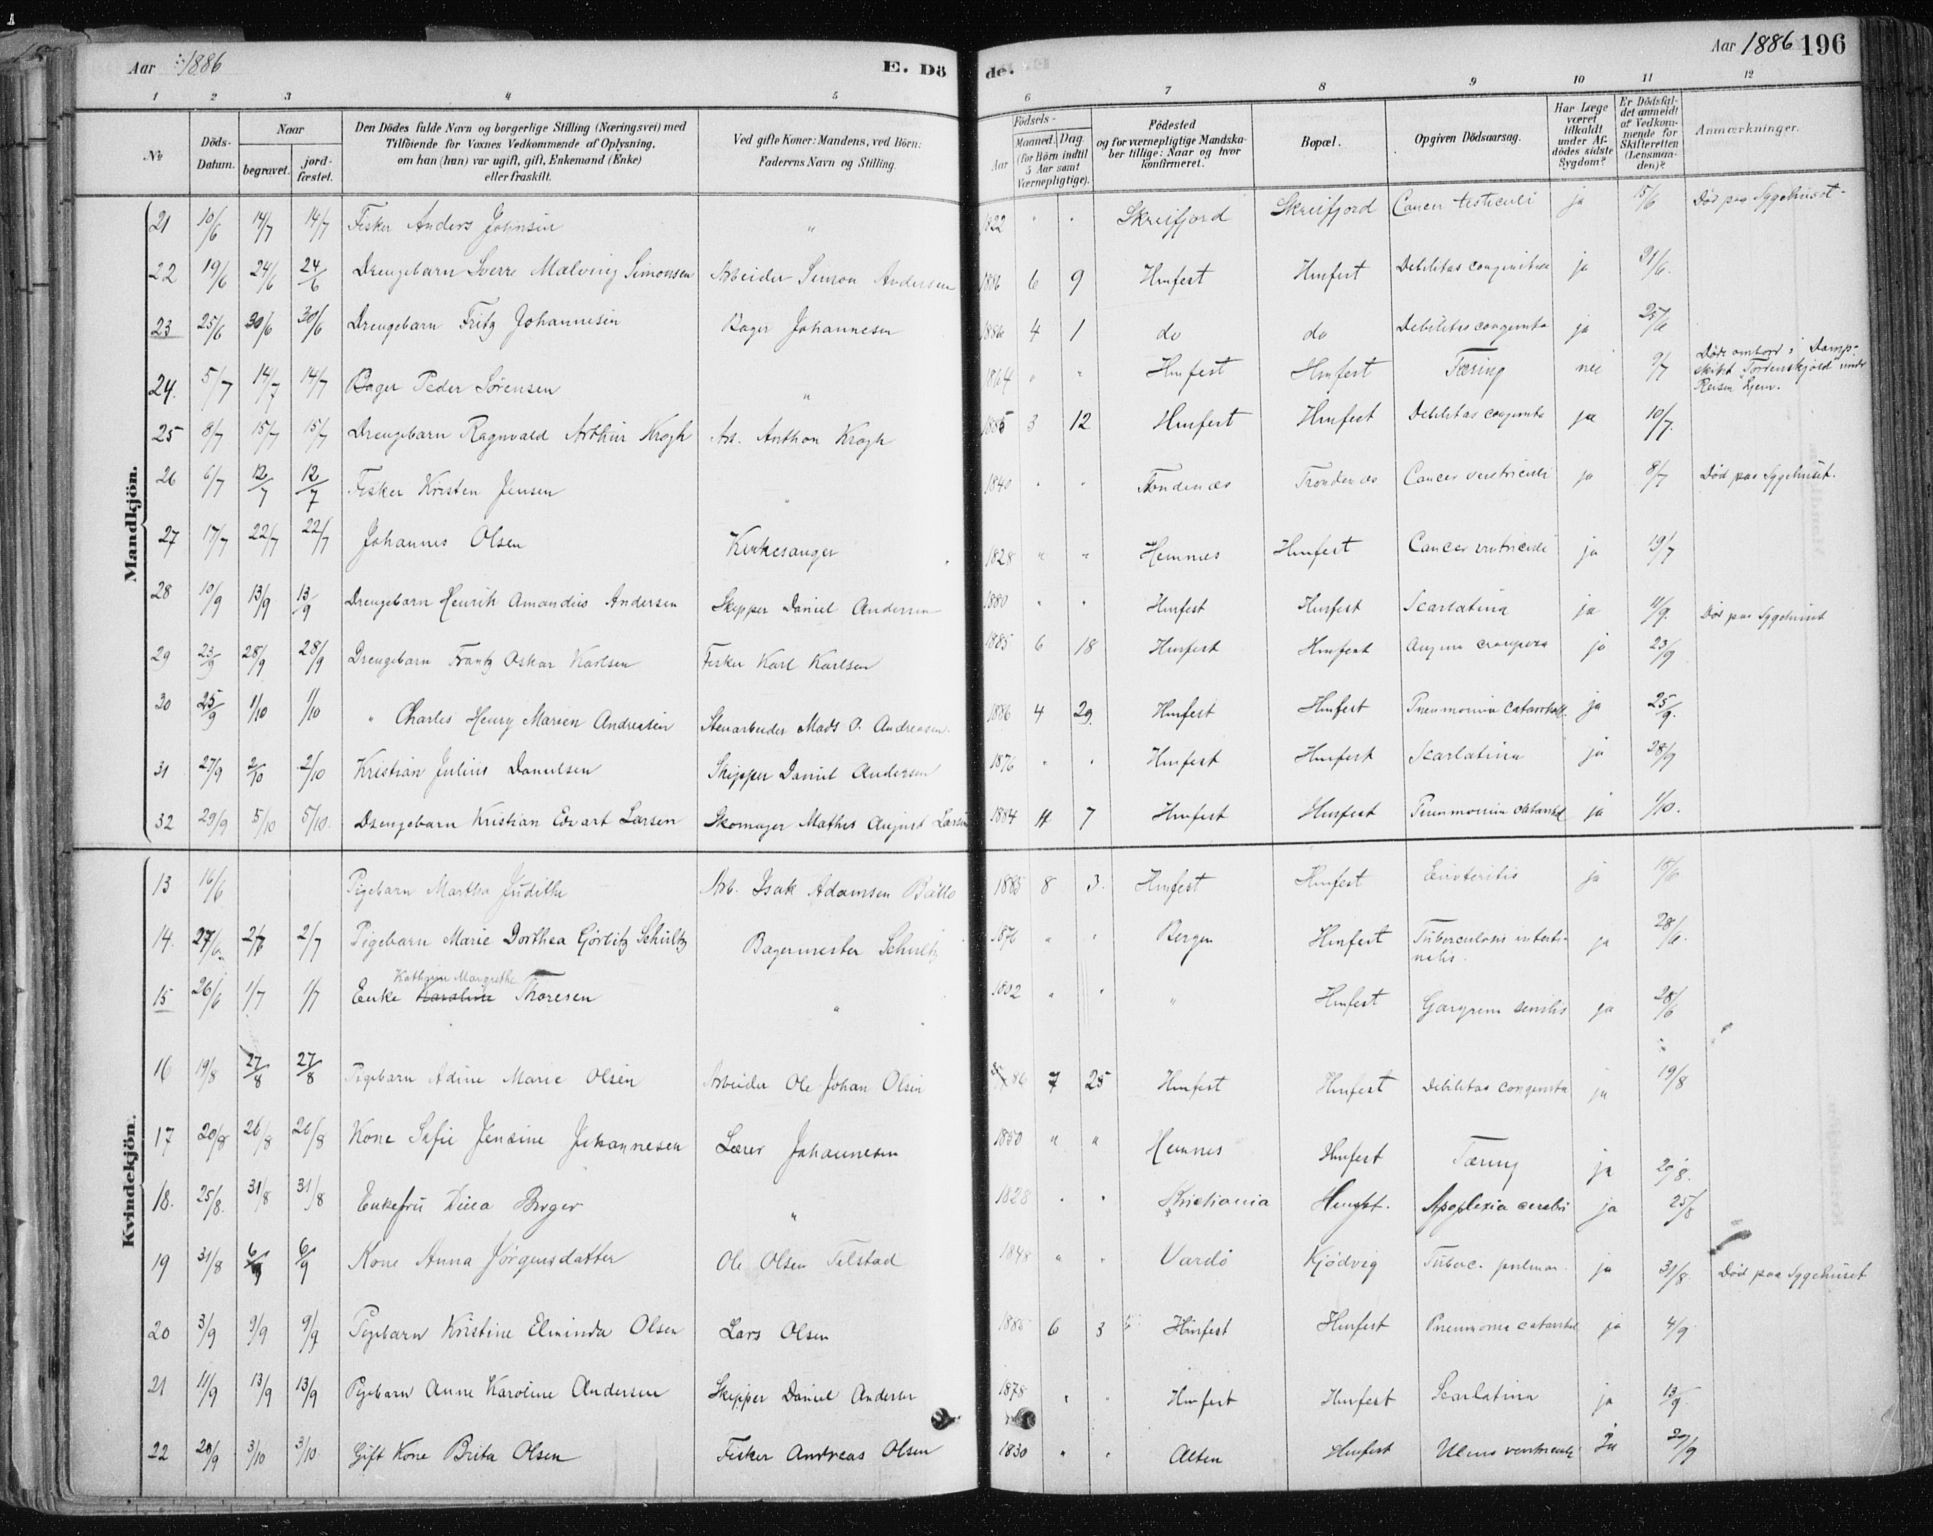 Aar 1886 E. Dö
de. Aar 1886 196
1 2 3 4 5 6 7 8 9 10 11 12
No
Döds-Datum.
Naar
begravet.
jord-fæstet.
Den Dödes fulde Navn og borgerlige Stilling (Næringsvei) med
Tilföiende for Voxnes Vedkommende af Oplysning,
om han (hun) var ugift, gift, Enkemand (Enke)
eller fraskilt.
Ved gifte Koner: Mandens, ved Börn:
Faderens Navn og Stilling.
Födsels-
Aar
Maaned. Dag.
(for Börn indtil
5 Aar samt
Værnepligtige).
Födested
og for værnepligtige Mandska-
ber tillige: Naar og hvor
konfirmeret.
Bopæl.
Opgiven Dödsaarsag.
Har Læge
været
tilkaldt
under Af-
dödes sidste
Sygdom?
Er Dödsfal-
det anmeldt
af Vedkom-
mende for
Skifteretten
(Lensman-
den)?
Anmærkninger.
Mandkjön.
21 10/6 14/7 14/7 Fisker Anders Johnsen " 1822 " " Skreifjord Skreifjord Cancer testiculi ja 15/6 Död paa Sygehuset
22 19/6 24/6 24/6 Drengebarn Sverre Malving Simonsen Arbeider Simon Andersen 1886 6 9 Hmfest Hmfest Debilitas congenita ja 21/6.
23 25/6 30/6 30/6 Drengebarn Fritz Johannesen Bager Johannesen 1886 4 1 do do Debilitas congenita ja 25/6
24. 5/7 14/7 14/7 Bager Peder Sörensen " 1864 " " Hmfest Hmfest Tæring nei 9/7 Döde ombord i Damp-
skibet "Tordenskjold" under
Reisen hjem.
25 8/7 15/7 15/7 Drengebarn Ragnvald Arthur Krogh Arb. Anthon Krogh 1885 3 12 Hmfest Hmfest Debilitas congenita ja 10/7.
26 6/7 12/7 12/7 Fisker Kristen Jensen " 1840 " " Trondenæs Trondenæs Cancer ventriculi ja 8/7 Död paa Sygehuset.
27 17/7 22/7 22/7 Johannes Olsen Kirkesanger 1828 " " Hemnæs Hmfest Cancer ventriculi ja 19/7
28 10/9 13/9 13/9 Drengebarn Henrik Amandus Andersen Skipper Daniel Andersen 1880 " " Hmfest Hmfest Scarlatina ja 11/9. Död paa Sygehuset
29 23/9 28/9 28/9 Drengebarn Frantz Oskar Karlsen Fisker Karl Karlsen 1885 6 18 Hmfest Hmfest Angina crouposa ja 23/9
30 25/9 1/10 1/10 " Charles Henry Marien Andreasen Stenarbeider Mads O. Andreasen. 1886 4 29. Hmfest Hmfest Pneumonia catarrhal. ja 25/9.
31 27/9 2/10 2/10 Kristian Julius Danielsen Skipper Daniel Andersen 1876 " " Hmfest Hmfest Scarlatina ja 28/9
32 29/9 5/10 5/10. Drengebarn Kristian Edvart Larsen Skomager Mathis August Larsen 1884 7 Hmfest Hmfest Pneumonia catarrhal ja 1/10.
Kvindekjön.
13 16/6 Pigebarn Martha Judithe Arb. Isak Adamsen Ballo 1885 8 3. Hmfest Hmfest Enteritis ja 18/6
14. 27/6 2/7 2/7 Pigebarn Marie Dorthea Görlitz Schultz Bagermester Schultz 1876 " " Bergen Hmfest Tuberculosis intesti-
nalis. ja 28/6.
Kathrine Margrethe
15 26/6 1/7 1/7 Enke Karoline Thoresen " 1802 " " " Hmfest Gangræna senilis ja 28/6
16 19/8 27/8 27/8 Pigebarn Adine Marie Olsen Arbeider Ole Johan Olsen 86 7 25 Hmfest Hmfest Debilitas congenita ja 19/8
17 20/8 26/8 26/8 Kone Sofie Jensine Johannesen Lærer Johannesen 1850 " " Hemnes Hmfest Tæring ja 20/8.
18. 25/8. 31/8 31/8 Enkefru Dina Berger " 1828 " " Kristiania Hmfst. Apoplexia cerebri ja 25/8
19 31/8 6/9 6/9 Kone Anna Jörgensdatter Ole Olsen Tilstad 1848 " " Vardö Kjödvig Tuberc. pulmon. ja 31/8. Död paa Sygehuset
20 3/9 9/9 9/9 Pigebarn Kristine Elminda Olsen Lars Olsen 1885 6 3 Hmfest Hmfest Pneumonia catarrhal ja 4/9
21 11/9 13/9 13/9 Pigebarn Anne Karoline Andersen Skipper Daniel Andersen 1878 " " Hmfest Hmfest Scarlatina ja 13/9.
22 29/9 3/10 3/10 Gift Kone Brita Olsen Fisker Andreas Olsen 1830 " " Alten Hmfest Ulcus ventriculi Ja 29/9